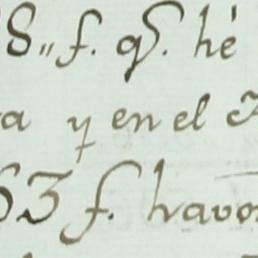 8,, f. qꝭ. hé
a y en el
63 f. havo